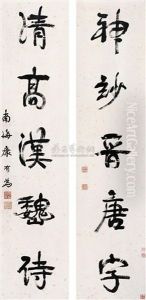 神妙晋唐字
清高漢魏詩
南海康有為
NiceArtGallery.com